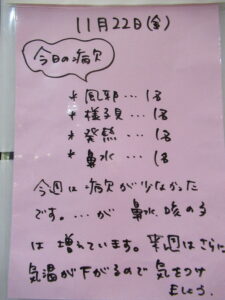 11月22日(金)
今日の病欠
* 風邪… 1名
* 様子見… 1名
* 発熱… 1名
* 鼻水… 1名
今週は病欠が少なかった
です。…が 鼻水、咳の子
は 増えています。来週はさらに
気温が下がるので 気をつけ
ましょう。